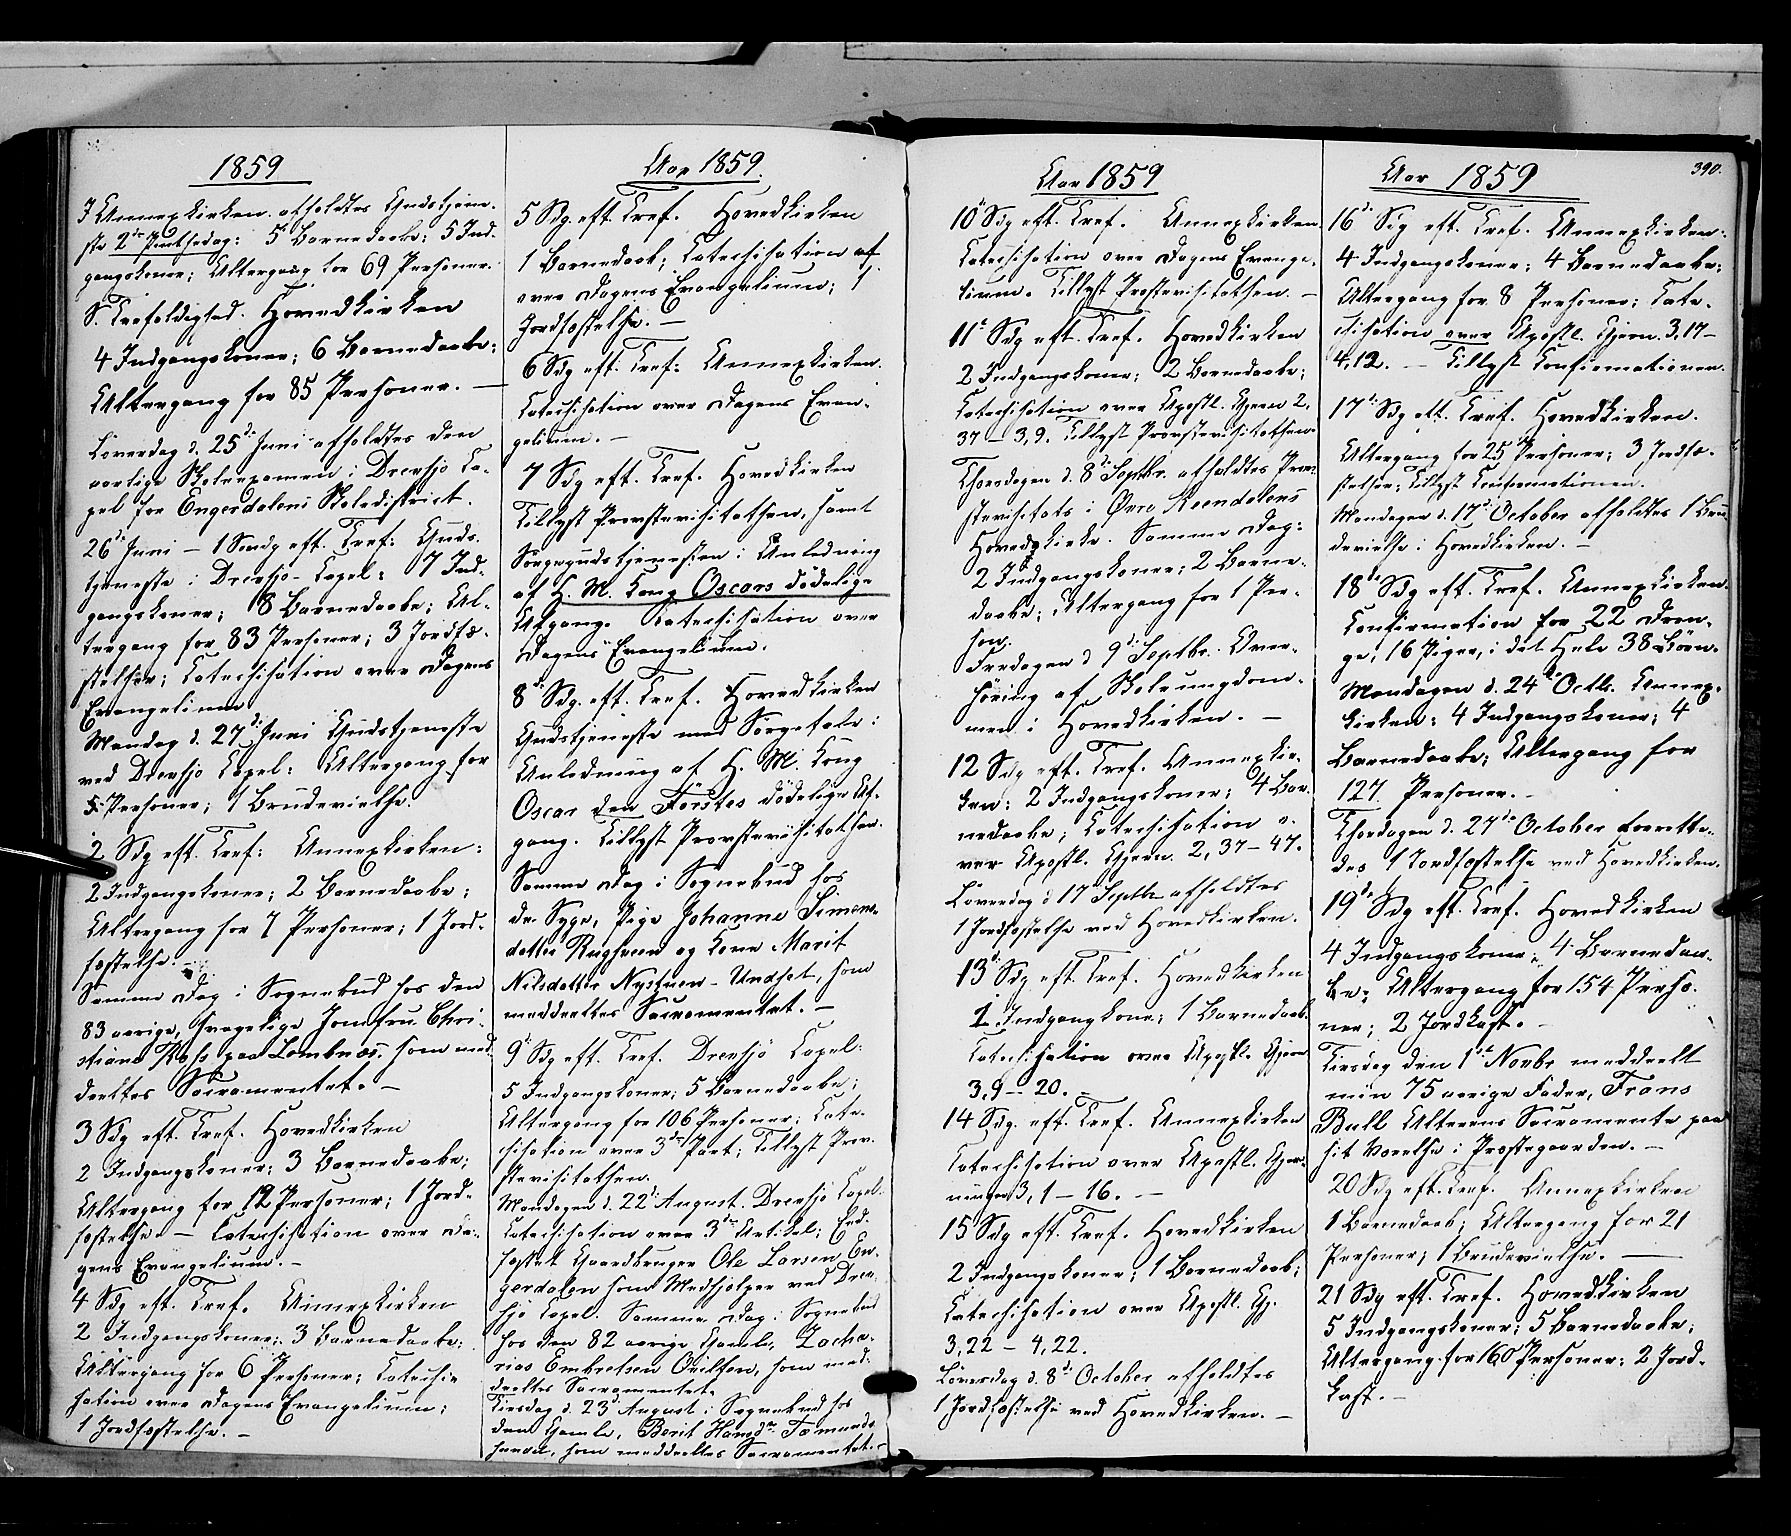 1859
I Annexkirken afholdtes Gudstjene-
ste 2den Pintsedag: 5 Barnedaabe; 5 Ind-
gangskoner; Altergang for 69 Personer.
S. Trefoldighed. Hovedkirken
4 Indgangskoner; 6 Barnedaabe;
Altergang for 85 Personer. —
Løverdag d. 25de Juni afholdtes den
aarlige Skoleexamen i Drevsjø Ca-
pel for Engerdalens Skoledistrict.
26de Juni – 1 Søndg eft. Tref: Guds-
tjeneste i Drevsjø-Capel: 7 Ind-
gangskoner; 8 Barnedaabe; Al-
tergang for 83 Personer; 3 Jordfæ-
stelser; Catechisation over Dagens
Evangelium
Mandag d. 27de Juni Gudstjeneste
ved Drevsjø Capel: Altergang for
5 Personer; 1 Brudevielse.
2 Sdg eft. Tref: Annexkirken:
2 Indgangskoner; 2 Barnedaabe;
Altergang for 7 Personer; 1 Jord-
fæstelse. –
Samme Dag i Sognebud hos den
83 aarige, svagelige Jomfru Chri-
stiane paa Lombnæs, som med-
deeltes Sacramentet. –
3 Sdg eft. Tref. Hovedkirken
2 Indgangskoner; 3 Barnedaabe;
Altergang for 12 Personer; 1 Jord-
fæstelse. – Catechisation over Da-
gens Evangelium. –
4 Sdg eft. Tref. Annexkirken
2 Indgangskoner; 3 Barnedaabe;
Altergang for 6 Personer; Catechi-
sation over Dagens Evangelium;
1 Jordfæstelse. –
Aar 1859.
5 Sdg. eft. Tref. Hovedkirken
1 Barnedaab; Catechisation af
over Dagens Evangelium; 1
Jordfæstelse. –
6 Sdg eft. Tref: Annexkirken.
Catechisation over Dagens Evan-
gelium. –
7 Sdg. eft. Tref. Hovedkirken
Tillyst Provstevisitatsen, samt
Sørgegudstjenesten i Anledning
af H. M. Kong Oscars dødelige
Afgang. Katechisation over
Dagens Evangelium.
8de Sdg. eft. Tref. Hovedkirken
Gudstjeneste med Sørgetale i
Anledning af H. M. Kong
Oscar den Førstes dødelige Af-
gang. Tillyst Provstevisitatsen.
Samme Dag i Sognebud hos
de Syge, Pige Johanne Simens-
datter Rugsveen og Kone Marit
Nilsdatter Nystuen-Undset, som
meddeeltes Sacramentet. –
9de Sdg eft. Tref. Drevsjø Capel:
5 Indgangskoner; 5 Barnedaabe;
Altergang for 106 Personer; Cate-
chisation over 3die Part; Tillyst Prov-
stevisitatsen.
Mandagen d. 22de August. Drevsjø Capel.
Catechisation over 3die Artikel; Eed-
fæstet Gaardbruger Ole Larsen En-
gerdalen som Medhjelper ved Drev-
sjø Capel. Samme Dag i Sognebud
hos den 82 aarige Gamle, Zacha-
rias Embretsen Ovilsen, som med-
deeltes Sacramentet.
Tirsdag d. 23de August i Sognebud hos
den Gamle, Berit Hansdr Fæmunds-
, som meddeeltes Sacramentet. –
Aar 1859
10de Sdg eft. Tref. Annexkirken.
Catechisation over Dagens Evange-
lium. Tillyst Provstevisitatsen. –
11te Sdg eft. Tref. Hovedkirken
2 Indgangskoner; 2 Barnedaabe;
Catechisation over Apostl. Gjern 2,
37 – 3,9. Tillyst Provstevisitatsen.
Thorsdagen d. 8de Septbr. afholdtes Prov-
stevisitats i Øvre Reendalens
Hovedkirke. Samme Dag:
2 Indgangskoner; 2 Barne-
daabe; Altergang for 1 Per-
son.
Fredagen d 9de Septbr. Over-
høring af Skoleungdom-
men i Hovedkirken. –
12 Sdg eft. Tref. Annexkir-
ken: 2 Indgangskoner; 4 Bar-
nedaabe; Catechisation o-
ver Apostl. Gjern. 2, 37–47.
Løverdag d 17de Septbr afholdtes
1 Jordfæstelse ved Hovedkirken.
13de Sdg eft Tref. Hovedkirken
1 Indgangskone; 1 Barnedaab
Catechisation over Apostl. Gjern
3,9 – 20. –
14 Sdg. eft. Tref. Annexkirken
Catechisation over Apostl. Gjer-
ninger 3, 1 – 16. –
15 Sdg eft. Tref. Hovedkirken
2 Indgangskoner; 1 Barnedaab;
Catechisation over Apostl. Gj.
3,22 – 4,22.
Løverdag d. 8de October afholdtes
1 Jordfæstelse ved Hovedkirken. –
Aar 1859
390.
16de Sdg eft. Tref. Annexkirken:
4 Indgangskoner; 4 Barnedaabe;
Altergang for 8 Personer; Cate-
chisation over Apostl. Gjern. 3,17–
4,12. – Tillyst Confirmationen.
17de Sdg eft. Tref. Hovedkirken.
Altergang for 25 Personer; 3 Jordfæ-
stelser; Tillyst Confirmationen.
Mandagen d. 17de October afholdtes 1 Bru-
devielse i Hovedkirken. –
18de Sdg eft. Tref. Annexkirken.
Confirmation for 22 Dren-
ge, 16 Piger, i det Hele 38 Børn.
Mandagen d. 24de Octbr. Annex-
kirken: 4 Indgangskoner; 4
Barnedaabe; Altergang for
127 Personer. –
Thorsdagen d. 27de October forrette-
des 1 Jordfæstelse ved Hovedkirken.
19de Sdg eft. Tref. Hovedkirken
4 Indgangskoner; 4 Barnedaa-
be; Altergang for 154 Perso-
ner; 2 Jordkast. –
Tirsdag den 1ste Novbr meddeelt
min 75 aarige Fader, Frans
Bull Alterens Sacramente paa
sit Værelse i Præstegaarden. –
20 Sdg eft. Tref. Annexkirken
1 Barnedaab; Altergang for 21
Personer; 1 Brudevielse. —
21 Sdg eft. Tref. Hovedkirken
5 Indgangskoner; 5 Barnedaabe;
Altergang for 160 Personer; 2 Jord-
kast. –